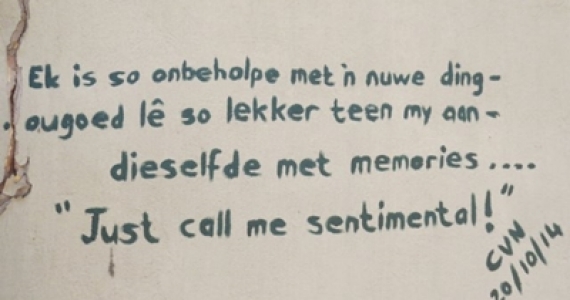 Ek is so onbeholpe met 'n nuwe ding -
ougoed lê so lekker teen my aan -
dieselfde met memories ....
"Just call me sentimental!"
CVN
20/10/14